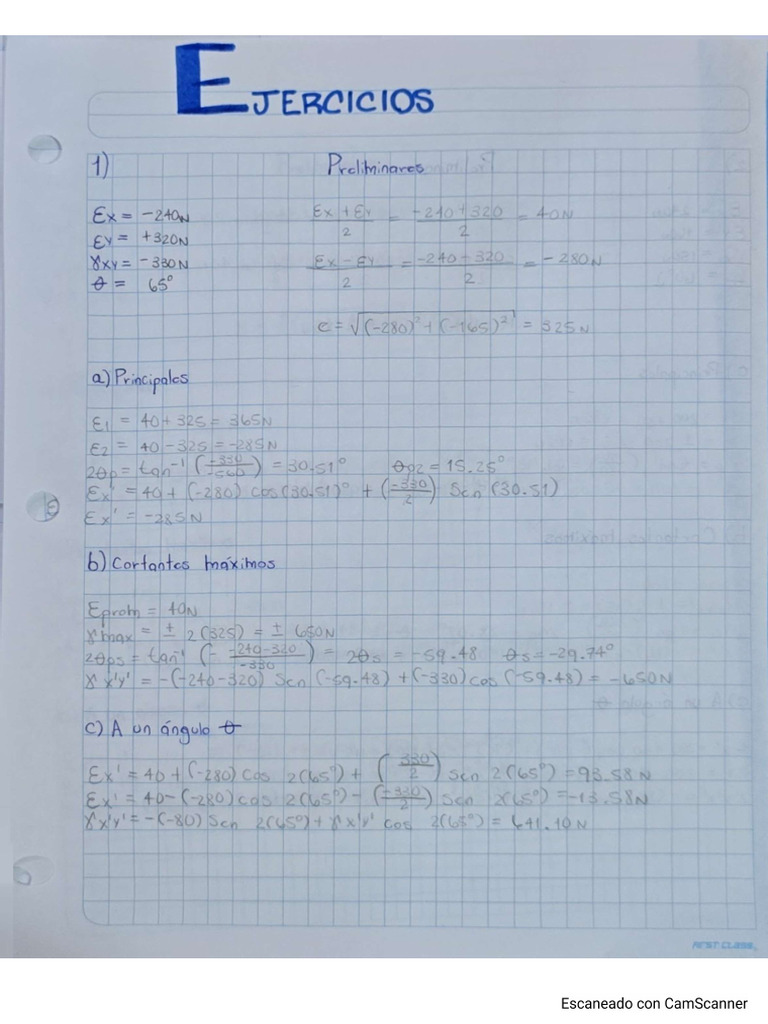 EJERCICIOS
1) Preliminares
Ɛx = -240N
Ɛy = +320N
γxy = -330N
θ = 65°
Ɛx + Ɛy / 2 = -240 + 320 / 2 = 40N
Ɛx - Ɛy / 2 = -240 - 320 / 2 = -280N
c = √(-280)² + (-165)² = 325N
a) Principales
Ɛ1 = 40 + 325 = 365N
Ɛ2 = 40 - 325 = -285N
2θp = tan⁻¹ (-330 / -560) = 30.51° θp2 = 15.25°
Ɛx' = 40 + (-280) cos (30.51)° + (-330 / 2) Sen (30.51)
Ɛx' = -285N
b) Cortantes máximos
Ɛprom = 40N
γmax = ± 2(325) = ± 650N
2θps = tan⁻¹ (- -240-320 / -330) = 2θs = -59.48 θs = -29.74°
γx'y' = -(-240-320) Sen (-59.48) + (-330) cos (-59.48) = -650N
c) A un ángulo θ
Ɛx' = 40 + (-280) cos 2(65°) + (330 / 2) Sen 2(65°) = 93.58N
Ɛx' = 40 - (-280) cos 2(65°) - (-330 / 2) Sen 2(65°) = -13.58N
γx'y' = -(-80) Sen 2(65°) + γx'y' cos 2(65°) = 641.10N
FIRST CLASS
Escaneado con CamScanner